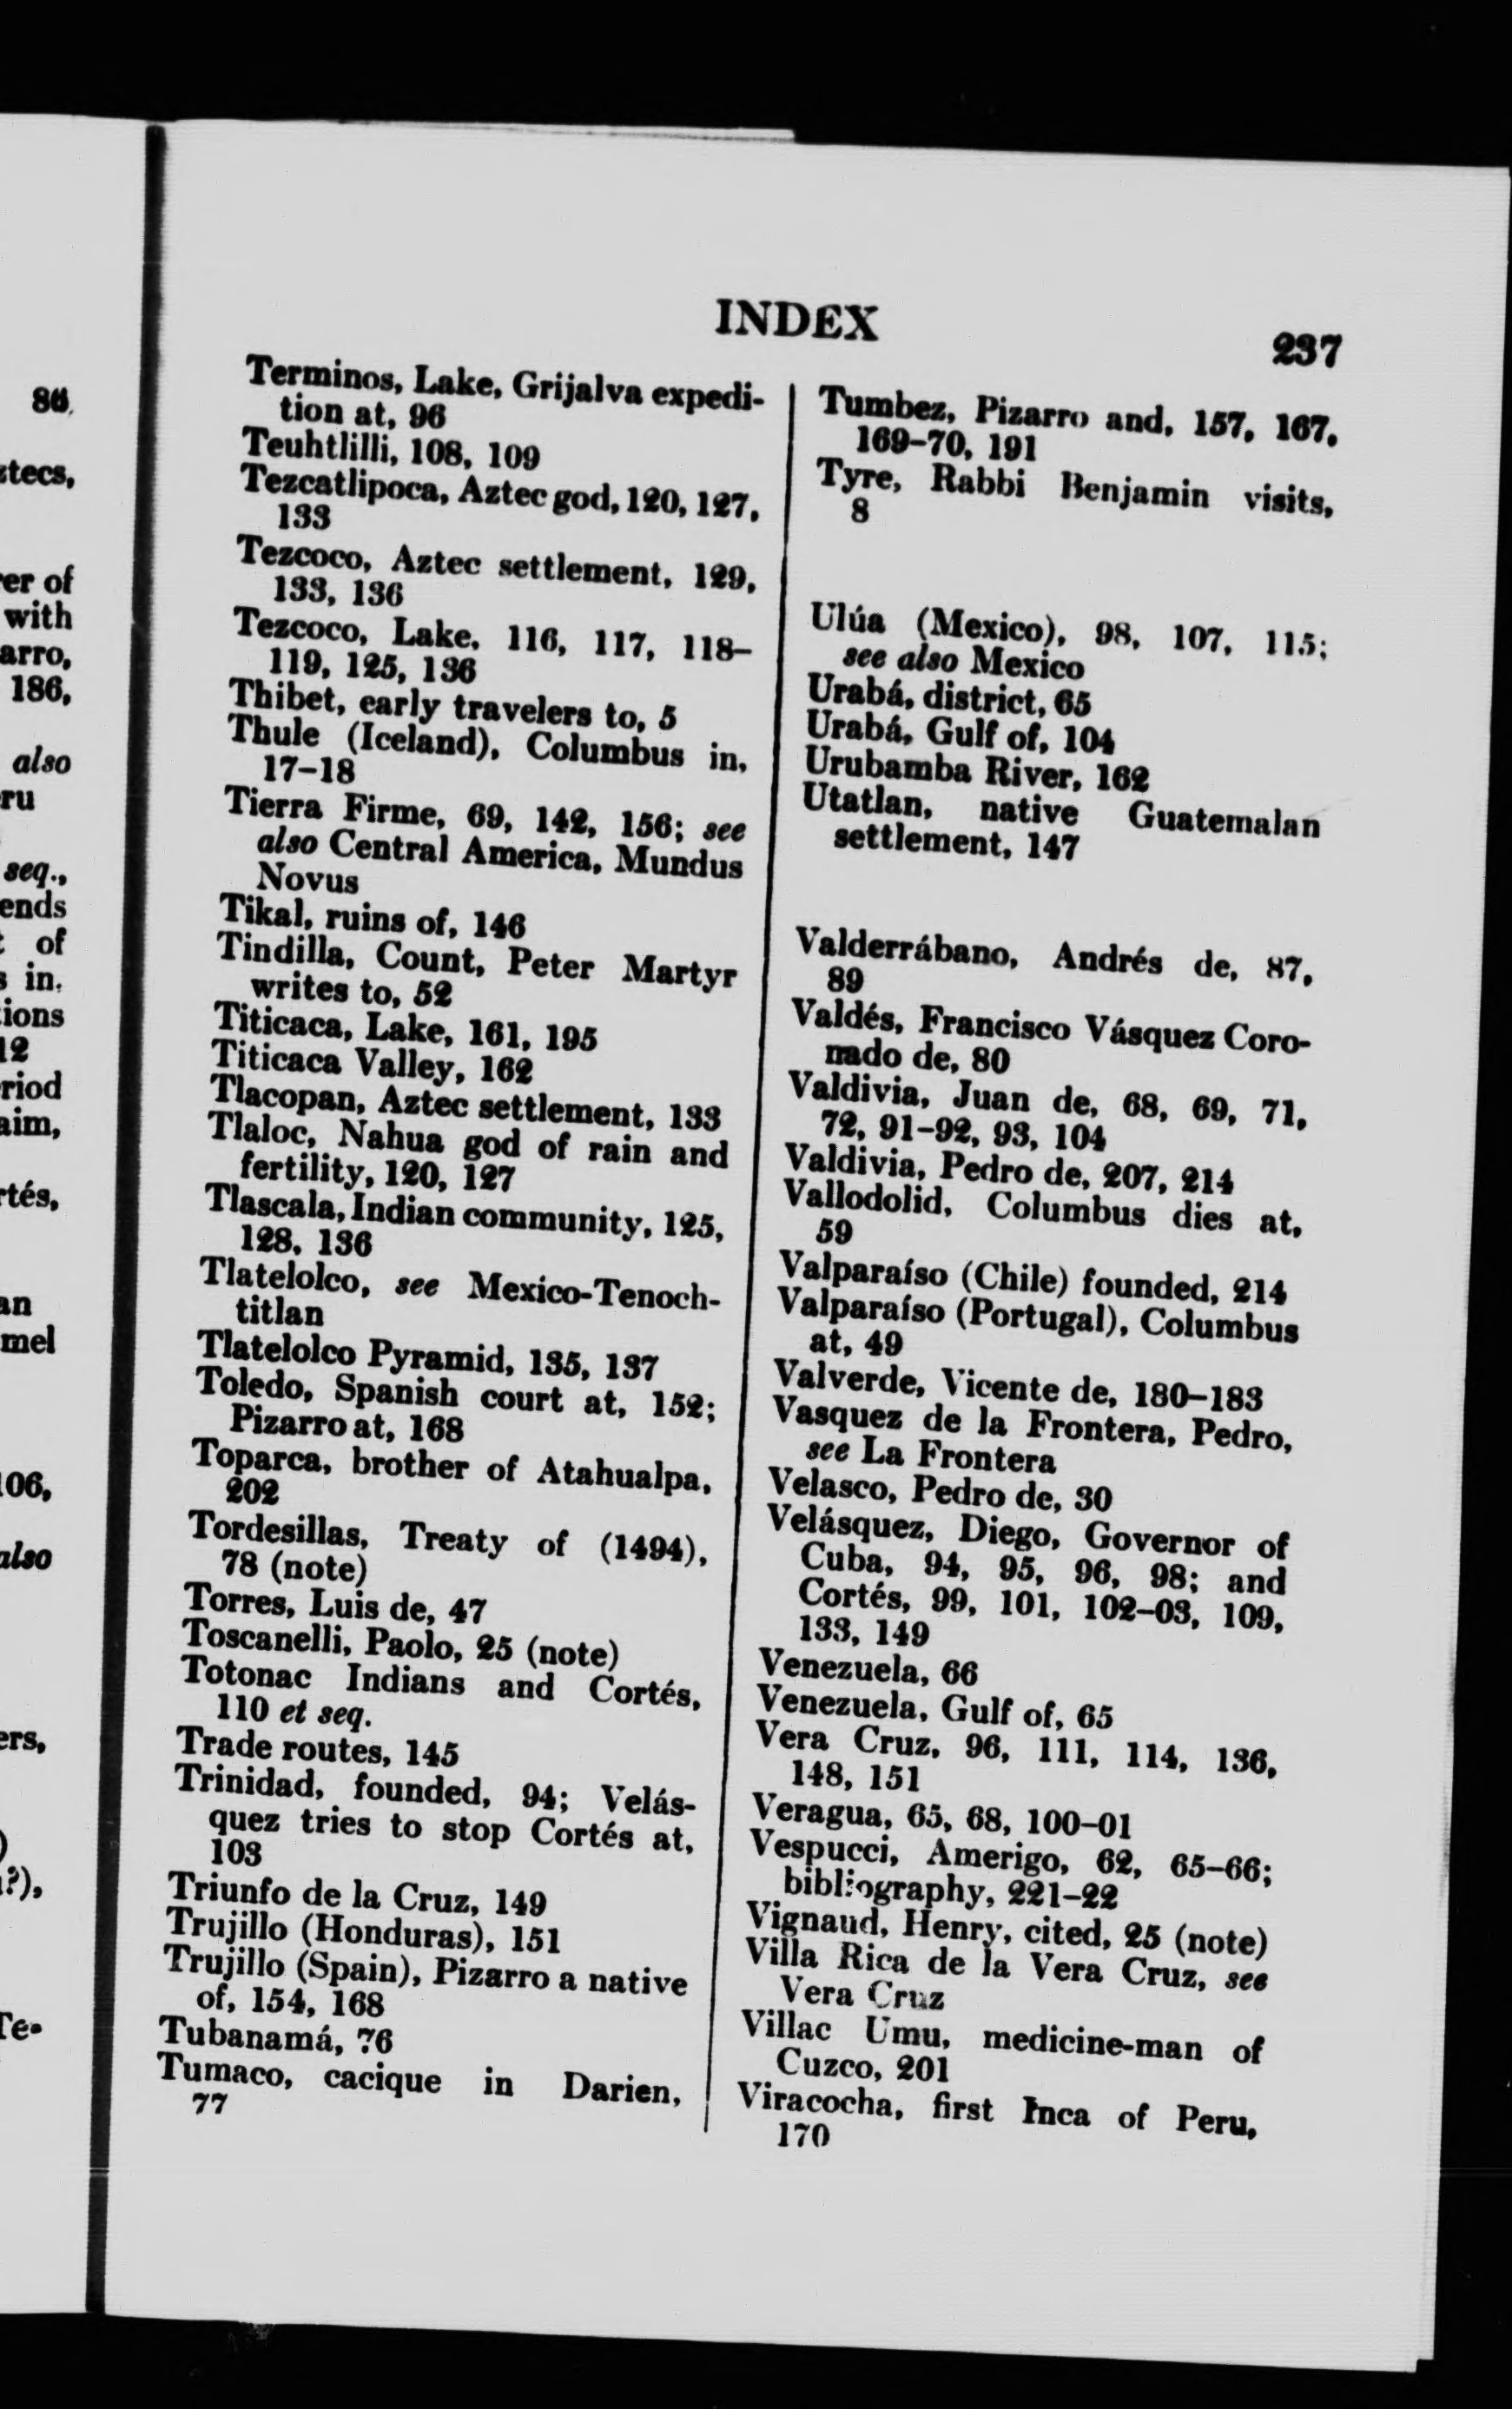 86,
ztecs,
er of
with
arro,
186,
also
ru
seq.,
ends
of
s in,
ions
12
riod
aim,
rtés,
an
mel
106,
also
ers,
)
?),
Te-
INDEX
237
Terminos, Lake, Grijalva expedi-
tion at, 96
Teuhtlilli, 108, 109
Tezcatlipoca, Aztec god, 120, 127,
133
Tezcoco, Aztec settlement, 129,
133, 136
Tezcoco, Lake, 116, 117, 118–
119, 125, 136
Thibet, early travelers to, 5
Thule (Iceland), Columbus in,
17–18
Tierra Firme, 69, 142, 156; see
also Central America, Mundus
Novus
Tikal, ruins of, 146
Tindilla, Count, Peter Martyr
writes to, 52
Titicaca, Lake, 161, 195
Titicaca Valley, 162
Tlacopan, Aztec settlement, 133
Tlaloc, Nahua god of rain and
fertility, 120, 127
Tlascala, Indian community, 125,
128, 136
Tlatelolco, see Mexico-Tenoch-
titlan
Tlatelolco Pyramid, 135, 137
Toledo, Spanish court at, 152;
Pizarro at, 168
Toparca, brother of Atahualpa,
202
Tordesillas, Treaty of (1494),
78 (note)
Torres, Luis de, 47
Toscanelli, Paolo, 25 (note)
Totonac Indians and Cortés,
110 et seq.
Trade routes, 145
Trinidad, founded, 94; Velás-
quez tries to stop Cortés at,
103
Triunfo de la Cruz, 149
Trujillo (Honduras), 151
Trujillo (Spain), Pizarro a native
of, 154, 168
Tubanamá, 76
Tumaco, cacique in Darien,
77
Tumbez, Pizarro and, 157, 167,
169–70, 191
Tyre, Rabbi Benjamin visits,
8
Ulúa (Mexico), 98, 107, 115;
see also Mexico
Urabá, district, 65
Urabá, Gulf of, 104
Urubamba River, 162
Utatlan, native Guatemalan
settlement, 147
Valderrábano, Andrés de, 87,
89
Valdés, Francisco Vásquez Coro-
nado de, 80
Valdivia, Juan de, 68, 69, 71,
72, 91–92, 93, 104
Valdivia, Pedro de, 207, 214
Vallodolid, Columbus dies at,
59
Valparaíso (Chile) founded, 214
Valparaíso (Portugal), Columbus
at, 49
Valverde, Vicente de, 180–183
Vasquez de la Frontera, Pedro,
see La Frontera
Velasco, Pedro de, 30
Velásquez, Diego, Governor of
Cuba, 94, 95, 96, 98; and
Cortés, 99, 101, 102–03, 109,
133, 149
Venezuela, 66
Venezuela, Gulf of, 65
Vera Cruz, 96, 111, 114, 136,
148, 151
Veragua, 65, 68, 100–01
Vespucci, Amerigo, 62, 65–66;
bibliography, 221–22
Vignaud, Henry, cited, 25 (note)
Villa Rica de la Vera Cruz, see
Vera Cruz
Villac Umu, medicine-man of
Cuzco, 201
Viracocha, first Inca of Peru,
170